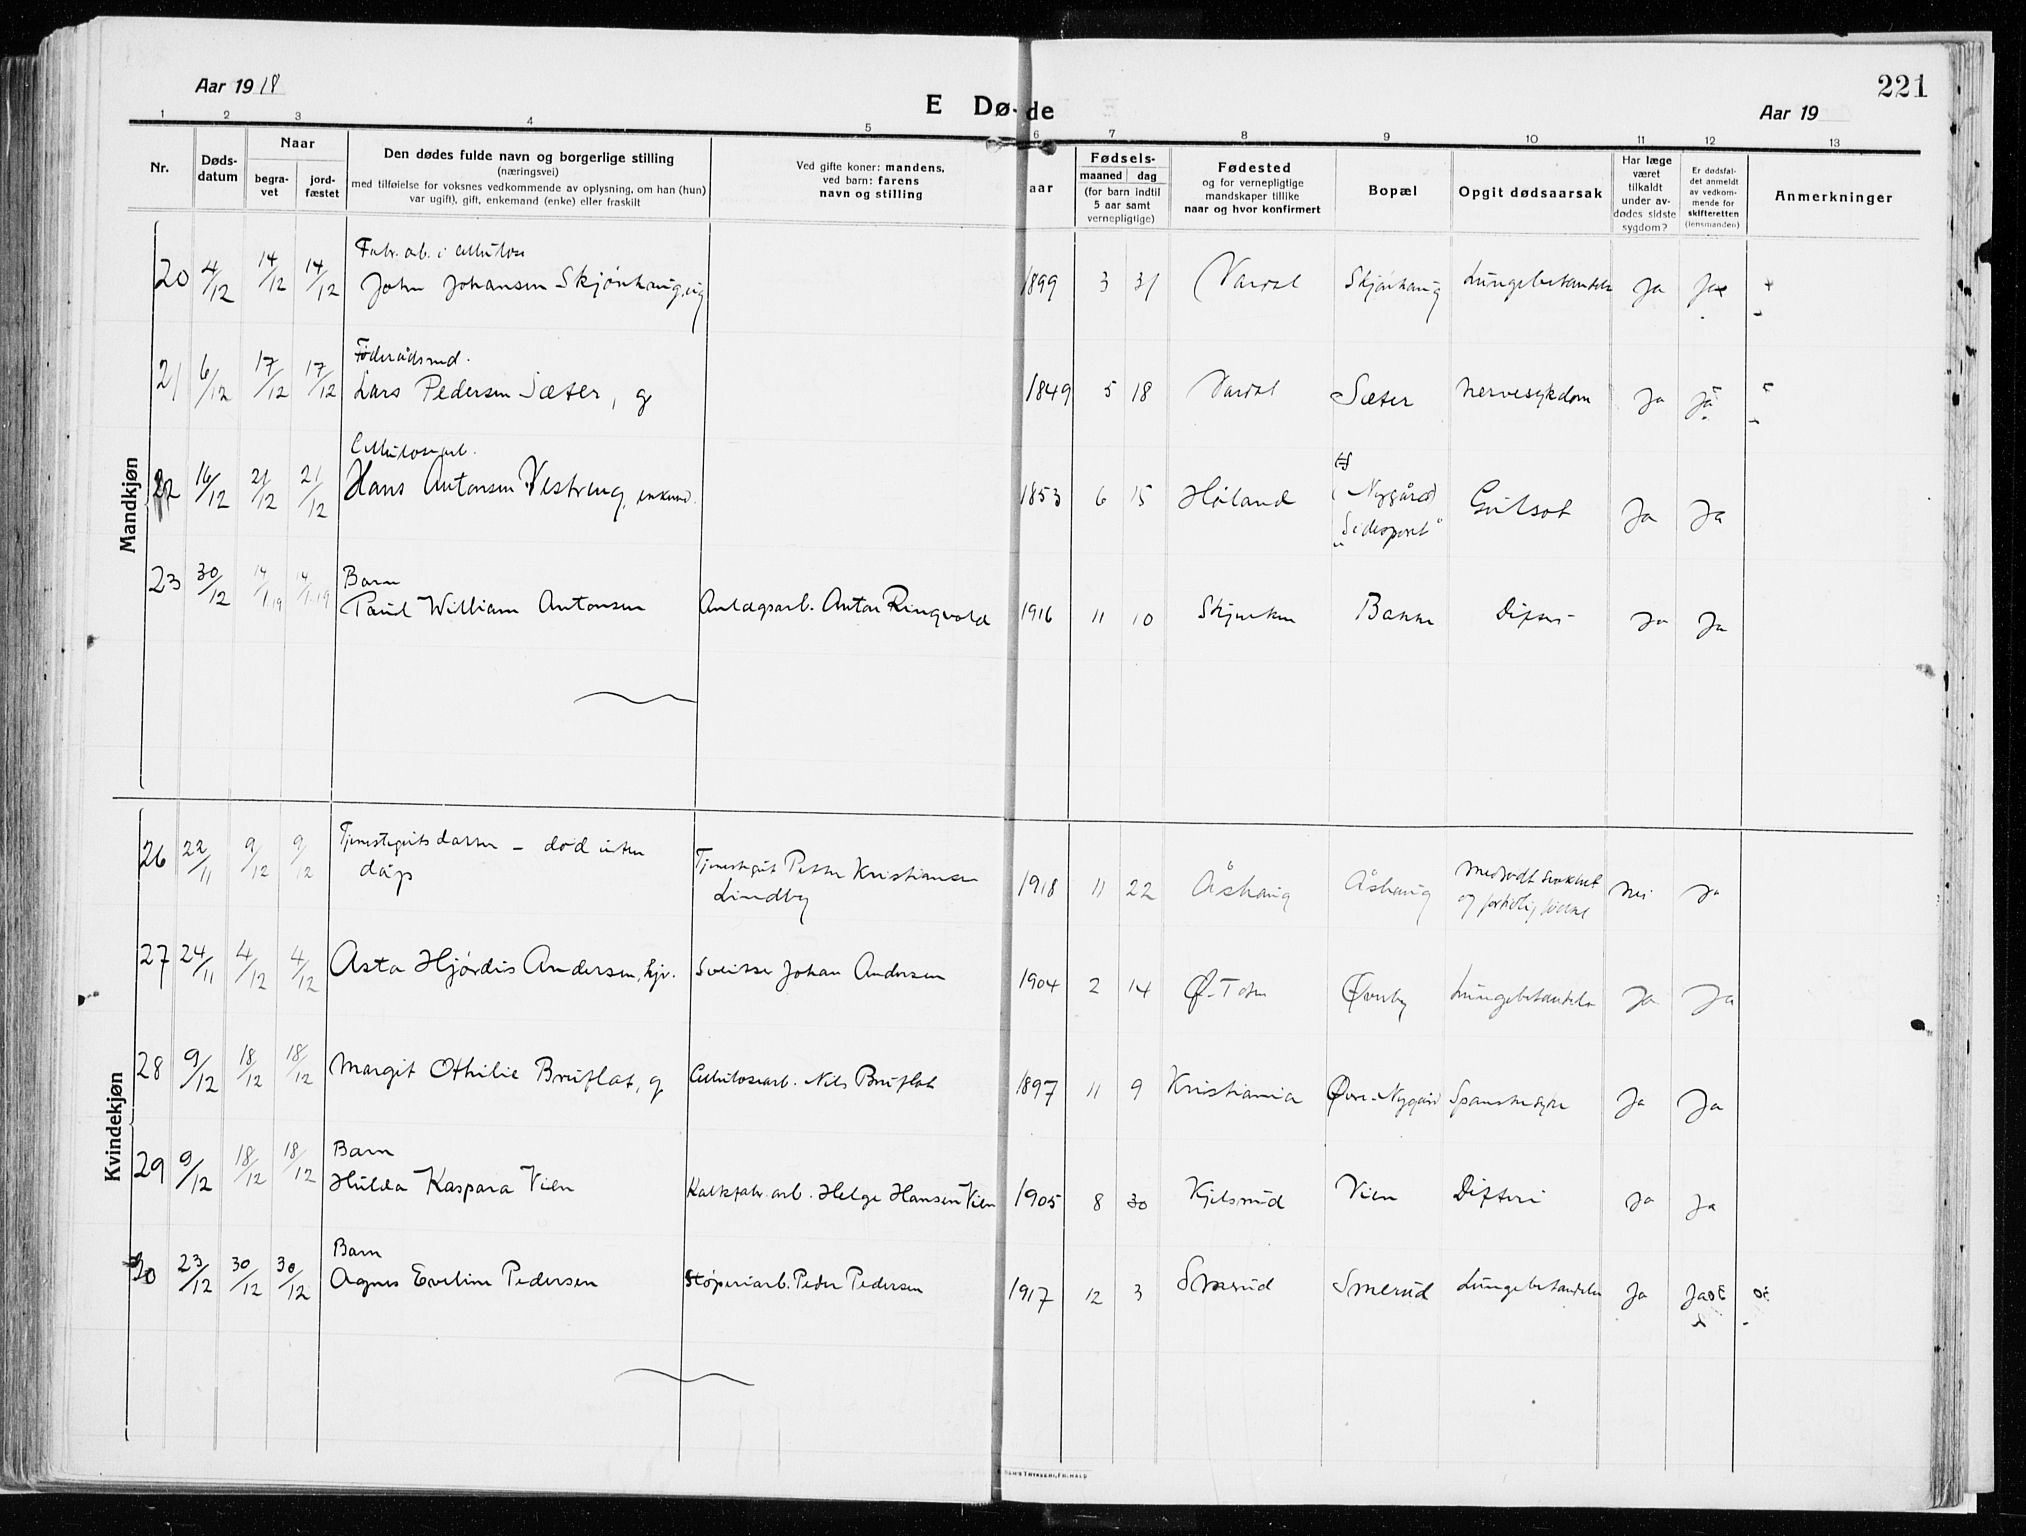 Aar 1918
E Dø-de
221
Aar 19
1 2 3 4 5 6 7 8 9 10 11 12 13
Nr.
Døds-
datum
Naar
begra-
vet
jord-
fæstet
Den dødes fulde navn og borgerlige stilling
(næringsvei)
med tilføielse for voksnes vedkommende av oplysning, om han (hun)
var ugift), gift, enkemand (enke) eller fraskilt
Ved gifte koner: mandens,
ved barn: farens
navn og stilling
aar
Fødsels-
maaned dag
(for barn indtil
5 aar samt
vernepligtige)
Fødested
og for vernepligtige
mandskaper tillike
naar og hvor konfirmert
Bopæl
Opgit dødsaarsak
Har læge
været
tilkaldt
under av-
dødes sidste
sygdom?
Er dødsfal-
det anmeldt
av vedkom-
mende for
skifteretten
(lensmanden)
Anmerkninger
Mandkjøn
Fabr. arb. i cellulose
20 4/12 14/12 14/12 John Johansen Skjønhaug, ug 1899 3 31 Vardal Skjønhaug Lungebetændelse Ja Ja
Føderådsmd.
21 6/12 17/12 17/12 Lars Pedersen Sæter, g 1849 5 18 Vardal Sæter nervesykdom Ja Ja
Cellulosearb.
22 16/12 21/12 21/12 Hans Antonsen Vestreng, enkemd. 1853 6 15 Høland Nygård Gulsot Ja Ja
Barn
23 30/12 14/1-19 14/1-19 Paul William Antonsen Anlægsarb. Anton Ringvold 1916 11 10 Skjerken Bakke Difteri Ja Ja
Kvindekjøn
26 22/11 9/12 9/12 Tjenesteguts datter - død uten
dåp
Tjenestegut Petter Kristiansen
Lindby
1918 11 22 Åshaug Åshaug medfødt svakhet
og for tidlig fødsel
nei Ja
27 24/11 4/12 4/12 Asta Hjørdis Andersen, Sveitser Johan Andersen 1904 2 14 Ø. Toten Øverby Lungebetændelse Ja Ja
28 9/12 18/12 18/12 Margit Othilie Bruflat, g Cellulosearb. Nils Bruflat 1897 11 9 Kristiania Øvre-Nygård Spanskesyke Ja Ja
Barn
29 9/12 18/12 18/12 Hulda Kaspara Vien Kalkfabr. arb. Helge Hansen Vien 1905 8 30 Kjelsrud Vien Difteri Ja Ja
Barn
30 23/12 30/12 30/12 Agnes Eveline Pedersen Støperiarb. Peder Pedersen 1917 12 3 Smerud Smerud Lungebetændelse Ja Ja